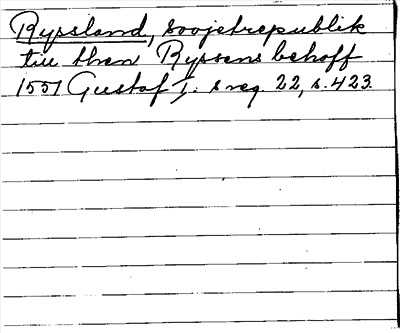 Ryssland, sovjetrepublik
till then Ryssens behoff
1551 Gustaf I. s reg. 22, s. 423.